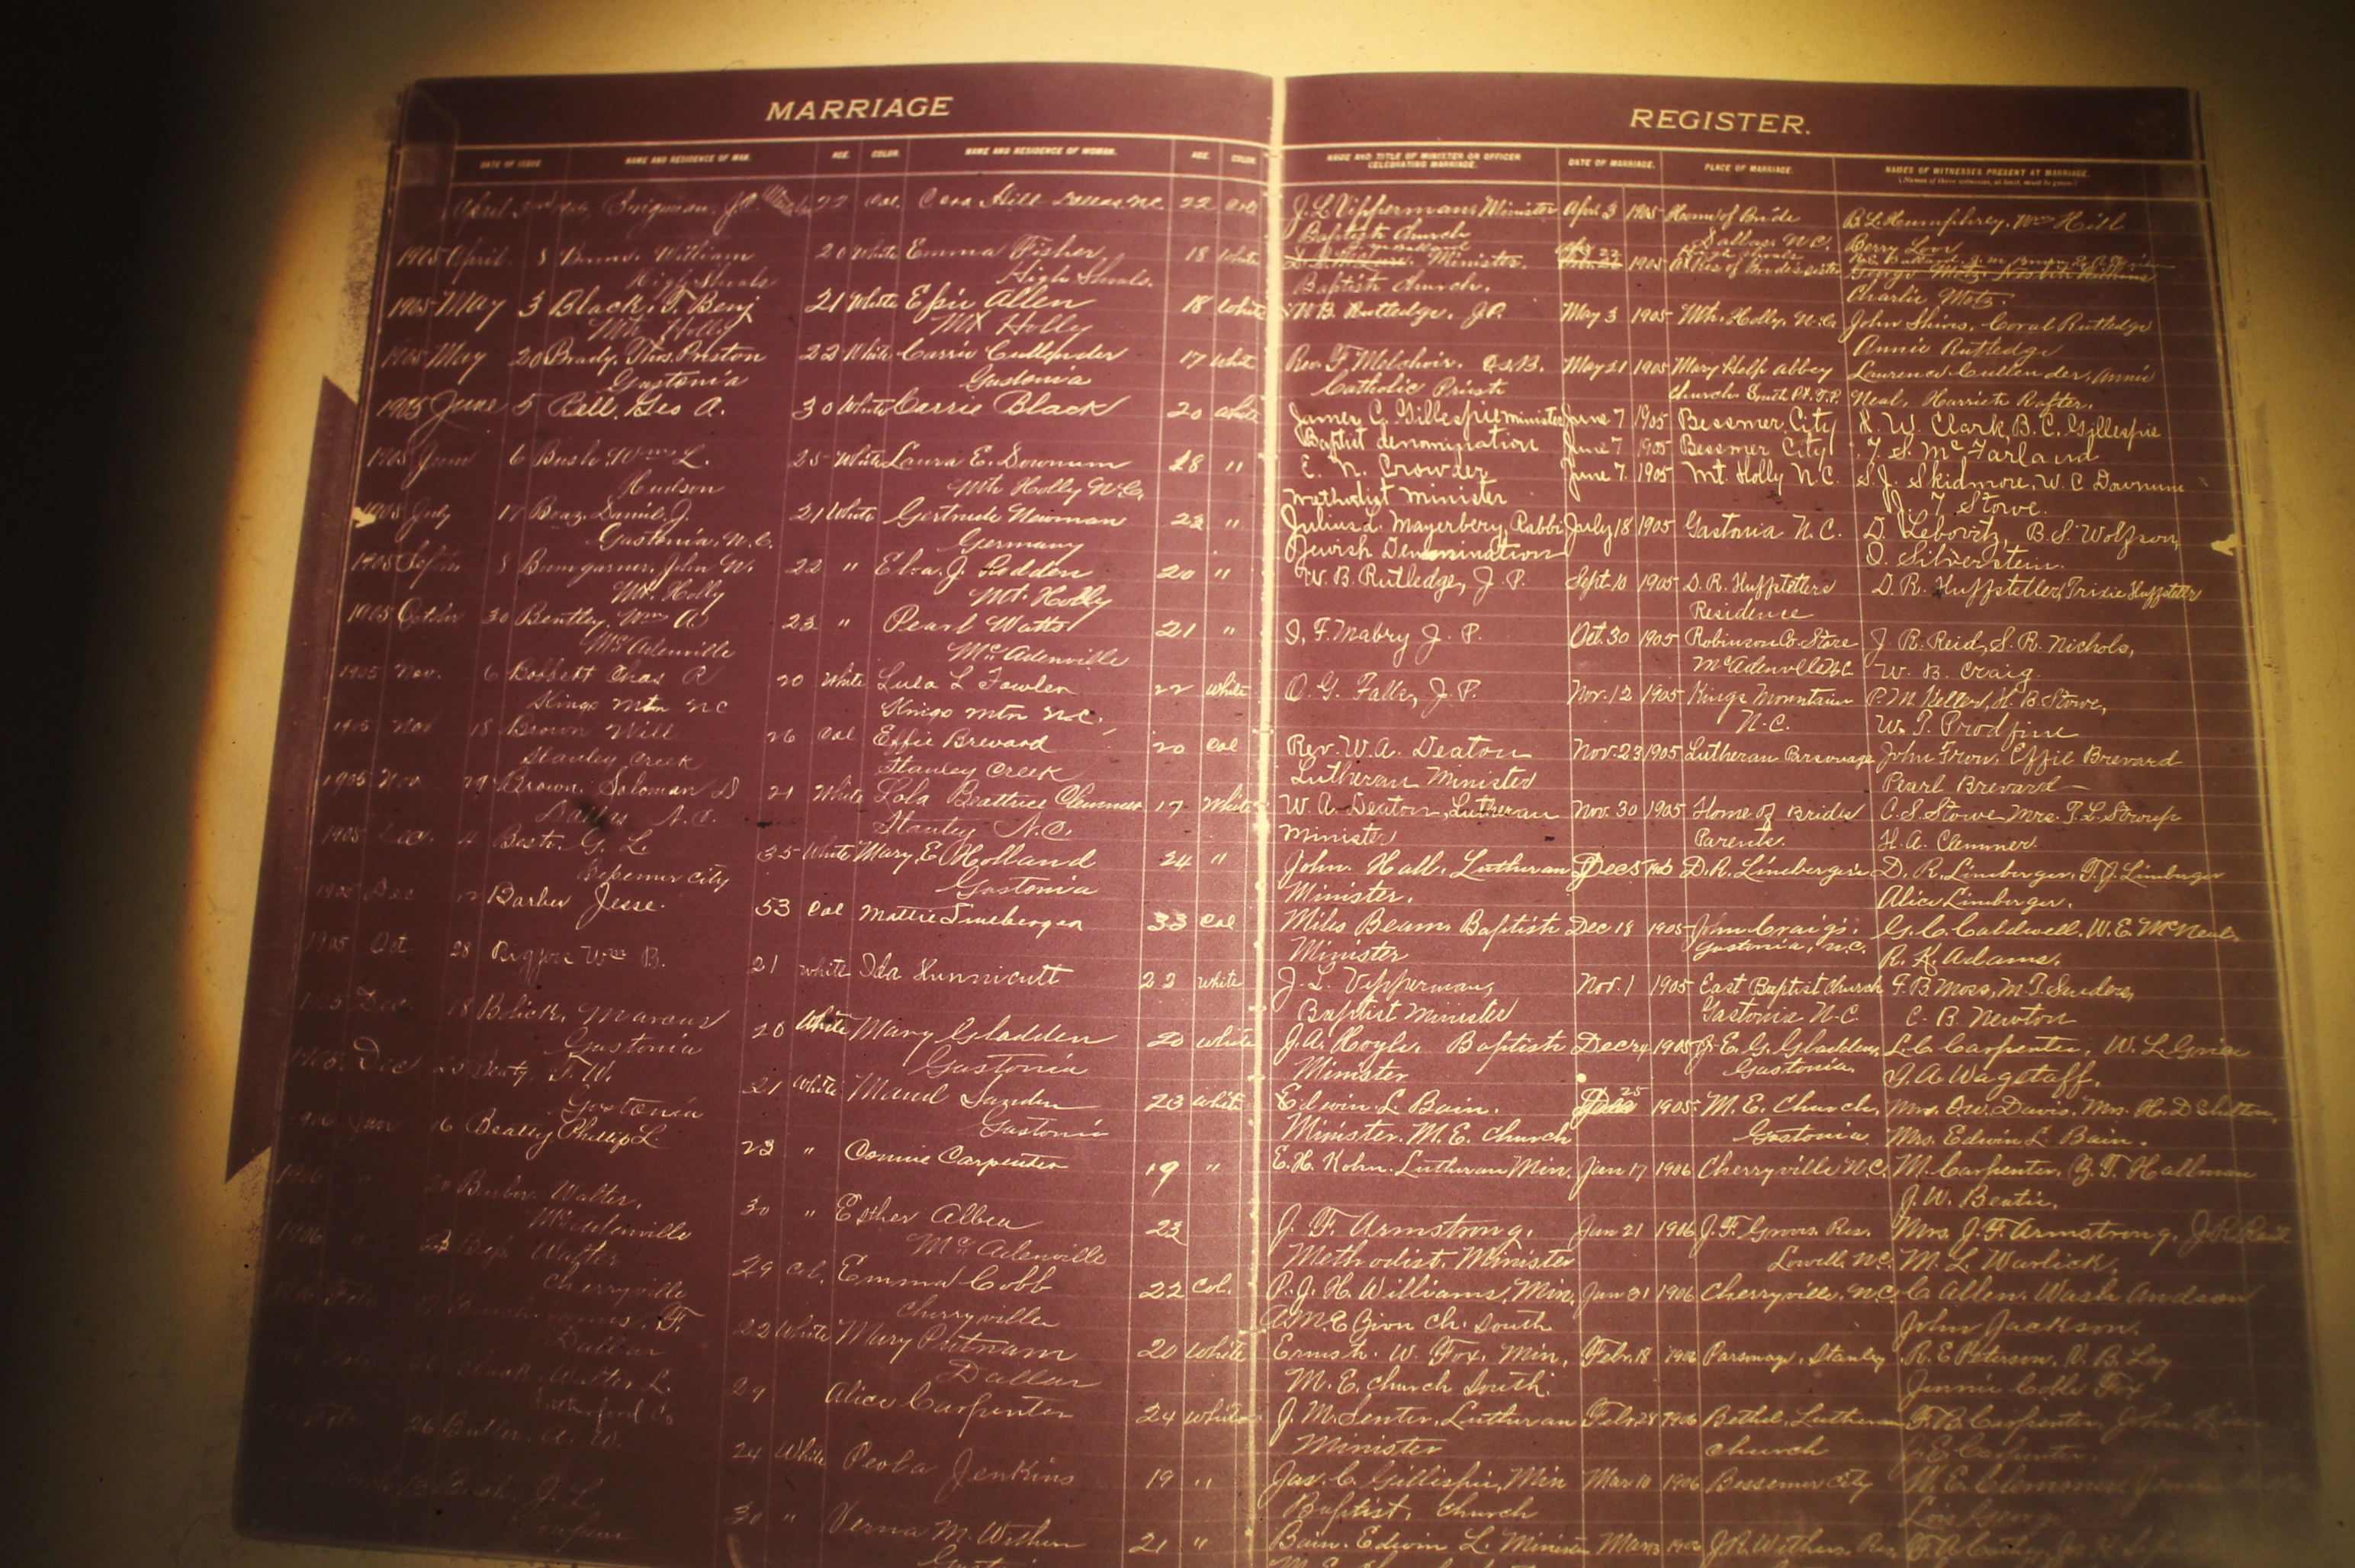 MARRIAGE REGISTER.
DATE OF ISSUE. NAME AND RESIDENCE OF MAN. AGE. COLOR. NAME AND RESIDENCE OF WOMAN. AGE. COLOR. NAME AND TITLE OF MINISTER OR OFFICER CELEBRATING MARRIAGE. DATE OF MARRIAGE. PLACE OF MARRIAGE. NAMES OF WITNESSES PRESENT AT MARRIAGE.
April 3rd Brigman, J.C. 22 Col. Cora Hill Dallas N.C. 22 Col J. L. Vipperman Minister Apr 3 1905 Home of Bride B. L. Humphrey, Wm Hill
Baptist Church Dallas, N.C. Berry Love
1905 April 8 William 20 White Emma Fisher, 18 White Minister. 1905 at Res of Bride's sister
High Shoals High Shoals. Baptist Church. Charlie Motz.
1905 May 3 Black, T. Benj 21 White Essie Allen 18 White W B. Rutledge, J.P. May 3 1905 Mt. Holly, N.C. John Shives, Coral Rutledge
Mt Holly Mt Holly Annie Rutledge
1905 May 20 Brady, Thos. Preston 22 White Carrie Cullender 17 White Rev. F Melchoir. O.S.B. May 21 1905 Mary Help abbey Laurence Cullender, Annie
Gastonia Gastonia Catholic Priest Church South Pt. T.P. Neal, Harriett Rafter.
1905 June 5 Bell, Geo A. 30 White Carrie Black 20 White James C. Gillespie minister June 7 1905 Bessmer City H. W. Clark, B. C. Gillespie
Baptist denomination June 7 1905 Bessmer City T. S. McFarland
1905 June 6 Bush, Wm L. 25 White Laura E. Downum 18 " E. N. Crowder June 7. 1905 Mt Holly N.C. S. J. Skidmore, W. C Downum
Hudson Mt Holly N.C. Methodist Minister J. T Stowe.
1905 July 17 Daniel J. 21 White Gertrude Newman 22 " Julius L. Mayerberg, Rabbi July 18 1905 Gastonia N.C. D. Lebovitz, B. S. Wolfson,
Gastonia, N.C. Germany Jewish Denomination O. Silverstein.
1905 8 Bumgarner, John W. 22 " J. Rodden 20 " W. B. Rutledge, J. P. Sept. 10 1905 D. R. Huffstetlers D. R. Huffstetler, Trixie Huffstetler
Mt. Holly Mt. Holly Residence
1905 October 30 Bentley, Wm A 22 " Pearl Watts 21 " F. Mabry J. P. Oct. 30 1905 Robinson Co. Store J. R. Reid, S. R. Nichols,
McAdenville McAdenville McAdenville N.C W. B. Craig.
1905 Nov. 6 Bobbett Chas R 20 White Lula L Fowler 22 White O. G. Falls, J. P. Nov. 12 1905 Kings Mountain P. M. Keller, H. B. Stowe,
Kings Mtn NC Kings Mtn N.C. N.C.
1905 Nov 18 Brown Will 26 Col Effie Brevard 20 Col Rev. W. A. Deaton Nov. 23 1905 Lutheran Parsonage John Effie Brevard
Stanley Creek Stanley Creek Lutheran Minister Pearl Brevard
1905 Nov 29 Brown, Soloman D 21 White Lola Beattrice Clemmer 17 White W. A. Deaton, Lutheran Nov. 30 1905 Home of Brides C. S. Stowe Mrs. T. L. Stroup
Dallas N.C. Stanley N.C. Minister Parents. H. A. Clemmer.
1905 Dec. 4 Best, G. L. 35 White Mary E Holland 24 " John. Hall. Lutheran Dec 5 D. R. Linebergers D. R. Lineberger, T. J. Lineberger
Bessemer City Gastonia Minister. Alice Lineberger.
1905 Dec Barber Jesse. 53 Col Mattie Lineberger 33 Col Miles Beam, Baptist Dec 18 1905 John Craig's. G. C. Caldwell, W. E. McNeal
Minister Gastonia, N.C. R. K. Adams.
1905 Oct 28 Wm B. 21 White Ida Hunnicutt 22 White J. L. Vipperman, Nov. 1 1905 East Baptist Church F. B. Moss, M. T. Sanders
Baptist Minister Gastonia N.C. C. B. Newton
1905 Dec. 18 Bolick, Marcus 20 White Mary Gladden 20 White J. A. Hoyle. Baptist Dec 24 1905 E. G. Gladdens L. C. Carpenter, W. L. Grice
Gastonia Gastonia Minister Gastonia. Wagstaff.
1905 Dec 25 Beaty, F. W. 21 White Maud Sanden 23 White Edwin L. Bain. 25 1905 M. E. Church, Mrs. O. W. Davis. Mrs. H. D Shelton,
Gastonia Gastonia Minister. M. E. Church Gastonia. Mrs. Edwin L. Bain.
1906 Jan 16 Beatty Phillip L. 23 " Connie Carpenter 19 " E. H. Kohn. Lutheran Min. Jan 17 1906 Cherryville N.C. M. Carpenter, Hallman
J. W. Beatie.
1906 " 20 Barber. Walter. 30 " Esther Albea 22 J. F. Armstrong. Jan 21 1906 J. F. Groves Res. Mrs. J. F. Armstrong,
McAdenville McAdenville Methodist. Minister Lowell, N.C. M. L. Warlick,
1906 " 23 Bess. Walter 29 Col. Emma Cobb 22 Col. P. J. H. Williams, Min. Jan 31 1906 Cherryville, N.C. C. Allen. Wash
Cherryville Cherryville A. M. E Zion Ch. South John Jackson.
Feb. James. F. 22 White Mary Putnam 20 White W. Fox, Min, Febr. 18 1906 Parsonage, Stanley R. E Peterson, Lay
Dallas Dallas M. E. Church South. Jennie Coble Fox
Black, Walter L. 27 Alice Carpenter 24 White J. M. Senter, Lutheran Febr 28 1906 Bethel. Lutheran Carpenter, John
Rutherford Co Minister Church Carpenter.
26 Butler. A. W. 24 White Peola Jenkins 19 " Jas. C. Gillispie, Min Mar 10 1906 Bessemer City M. E. Clemmer,
Baptist, Church Lois George
J. L. 30 " Verna M. Withers 21 " Bain. Edwin L. Minister Mar J. R. Withers Res.